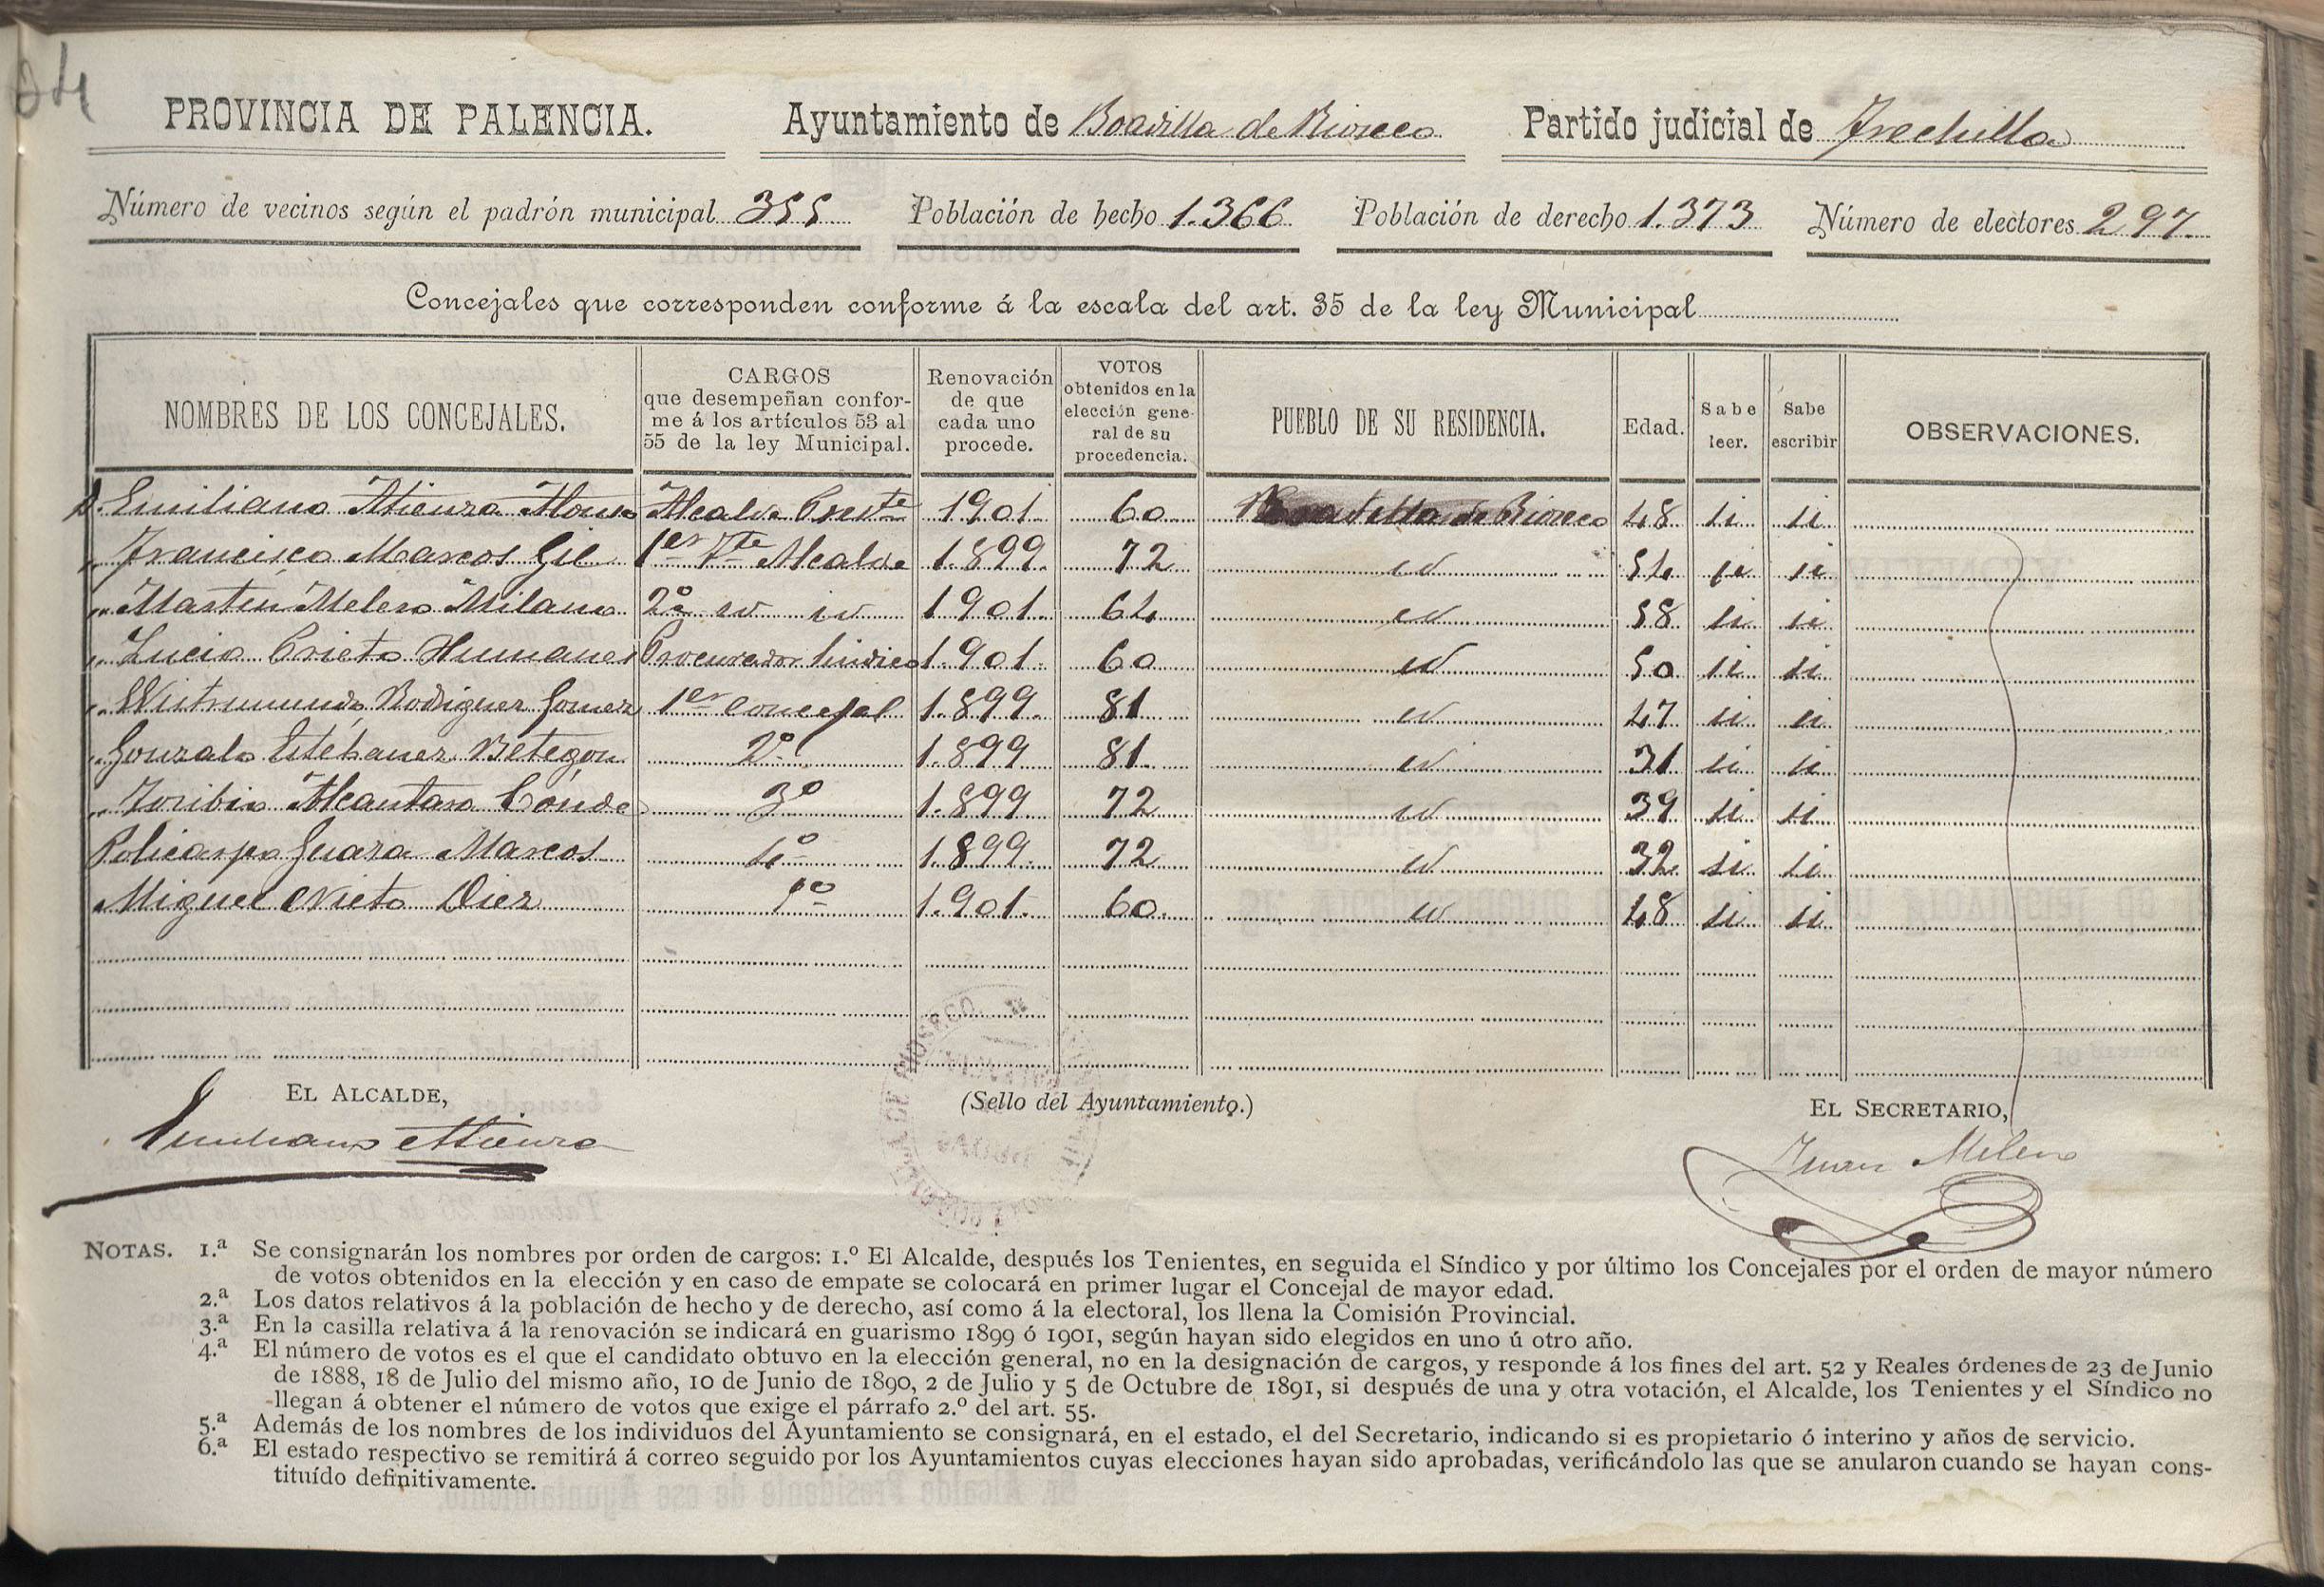 04
PROVINCIA DE PALENCIA. Ayuntamiento de Boadilla de Rioseco Partido judicial de Frechilla
Número de vecinos según el padrón municipal 355 Población de hecho 1.366 Población de derecho 1.373 Número de electores 297.
Concejales que corresponden conforme á la escala del art. 35 de la ley Municipal
NOMBRES DE LOS CONCEJALES. CARGOS que desempeñan conforme á los artículos 53 al 55 de la ley Municipal. Renovación de que cada uno procede. VOTOS obtenidos en la elección general de su procedencia. PUEBLO DE SU RESIDENCIA. Edad. Sabe leer. Sabe escribir OBSERVACIONES.
D. Emiliano Atienza Alonso Alcalde Presdte 1901 60 Boadilla de Rioseco 48 si si
" Francisco Marcos Gil 1er Tte Alcalde 1.899. 72 id 54 si si
" Martín Melero Milano 2º id id 1901. 64 id 58 si si
" Lucio Prieto Humanes Procurador Sindico 1.901. 60 id 50 si si
" Wistremundo Rodriguez Gomez 1er Concejal 1.899. 81 id 47 si si
" Gonzalo Estébanez Betegón 2º 1.899 81. id 31 si si
" Toribio Alcantara Conde 3º 1.899. 72 id 39 si si
Policarpo Guaza Marcos 4º 1899. 72 id 32 si si
Miguel Nieto Diez 5º 1.901. 60. id 48 si si
EL ALCALDE, (Sello del Ayuntamiento.) EL SECRETARIO,
Emiliano Atienza Juan Melero
NOTAS. 1.ª Se consignarán los nombres por orden de cargos: 1.º El Alcalde, después los Tenientes, en seguida el Síndico y por último los Concejales por el orden de mayor número
de votos obtenidos en la elección y en caso de empate se colocará en primer lugar el Concejal de mayor edad.
2.ª Los datos relativos á la población de hecho y de derecho, así como á la electoral, los llena la Comisión Provincial.
3.ª En la casilla relativa á la renovación se indicará en guarismo 1899 ó 1901, según hayan sido elegidos en uno ú otro año.
4.ª El número de votos es el que el candidato obtuvo en la elección general, no en la designación de cargos, y responde á los fines del art. 52 y Reales órdenes de 23 de Junio
de 1888, 18 de Julio del mismo año, 10 de Junio de 1890, 2 de Julio y 5 de Octubre de 1891, si después de una y otra votación, el Alcalde, los Tenientes y el Síndico no
llegan á obtener el número de votos que exige el párrafo 2.º del art. 55.
5.ª Además de los nombres de los individuos del Ayuntamiento se consignará, en el estado, el del Secretario, indicando si es propietario ó interino y años de servicio.
6.ª El estado respectivo se remitirá á correo seguido por los Ayuntamientos cuyas elecciones hayan sido aprobadas, verificándolo las que se anularon cuando se hayan cons-
tituído definitivamente.